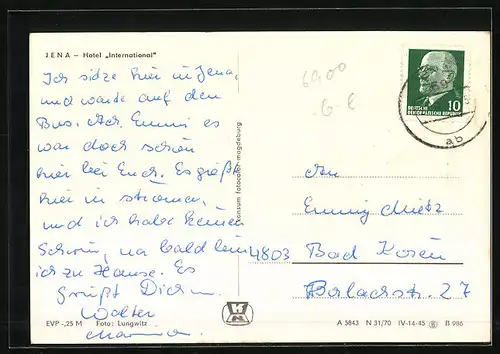 JENA – Hotel „International"
Ich sitze hier in Jena,
und warte auf den
Bus. Ach, Emmi es
war doch schön
hier bei Euch. Es gießt
hier in strömen,
und ich habe keinen
Schirm, na bald bin
ich zu Hause. Es
grüßt Dich
Walter
EVP -,25 M Foto: Lungwitz
konsum fotocolor-magdeburg
6900
DEUTSCHE
DEMOKRATISCHE REPUBLIK
10
ab
An
Emmy Metz
4803 Bad Kösen
Borlachstr. 27
A 5843 N 31/70 IV-14-45 B 986